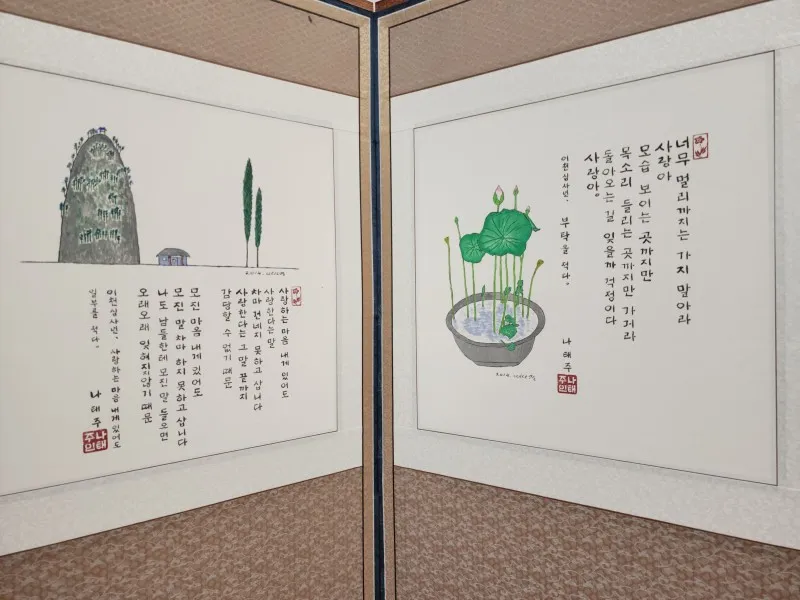 너무 멀리까지는 가지 말아라
사랑아
모습 보이는 곳까지만
목소리 들리는 곳까지만 가거라
돌아오는 길 잊을까 걱정이다
사랑아.
이천십사년, 부탁을 적다.
나태주
나태
주인
2014.
사랑하는 마음 내게 있어도
사랑한다는 말
차마 건네지 못하고 삽니다
사랑한다는 그 말 끝까지
감당할 수 없기 때문
모진 마음 내게 있어도
모진 말 차마 하지 못하고 삽니다
나도 남들한테 모진 말 들으면
오래오래 잊혀지지않기 때문
이천십사년, 사랑하는 마음 내게 있어도
일부를 적다.
나태주
나태
주인
2014.